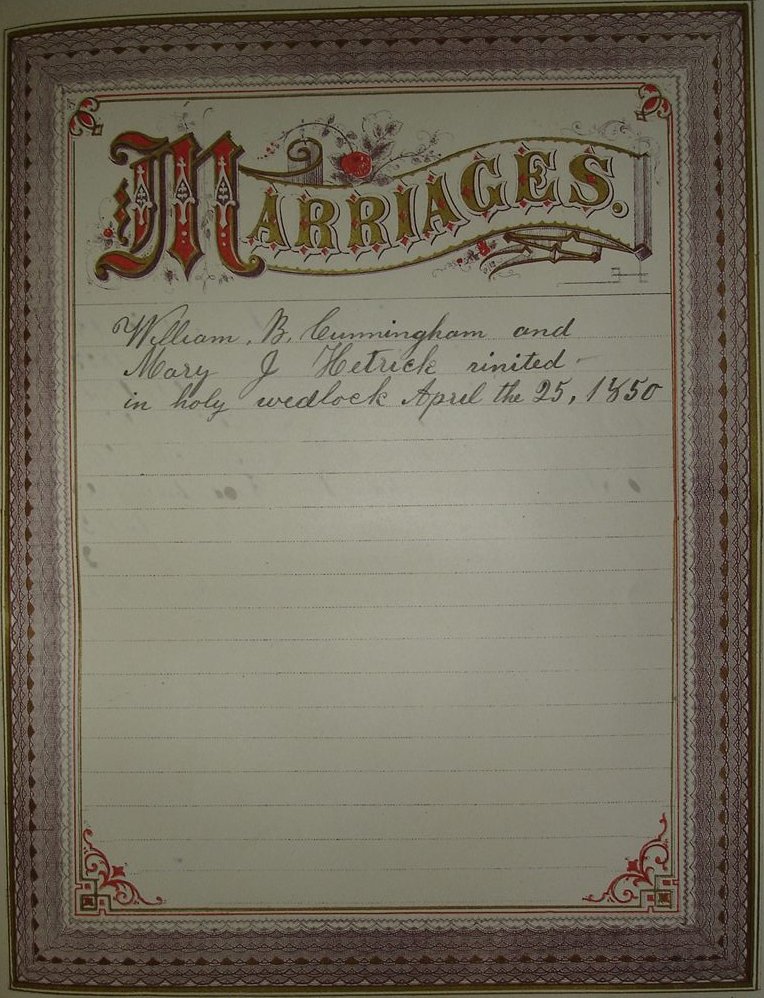 MARRIAGES.
William. B. Cunningham and
Mary J Hetrick rinited
in holy wedlock April the 25, 1850